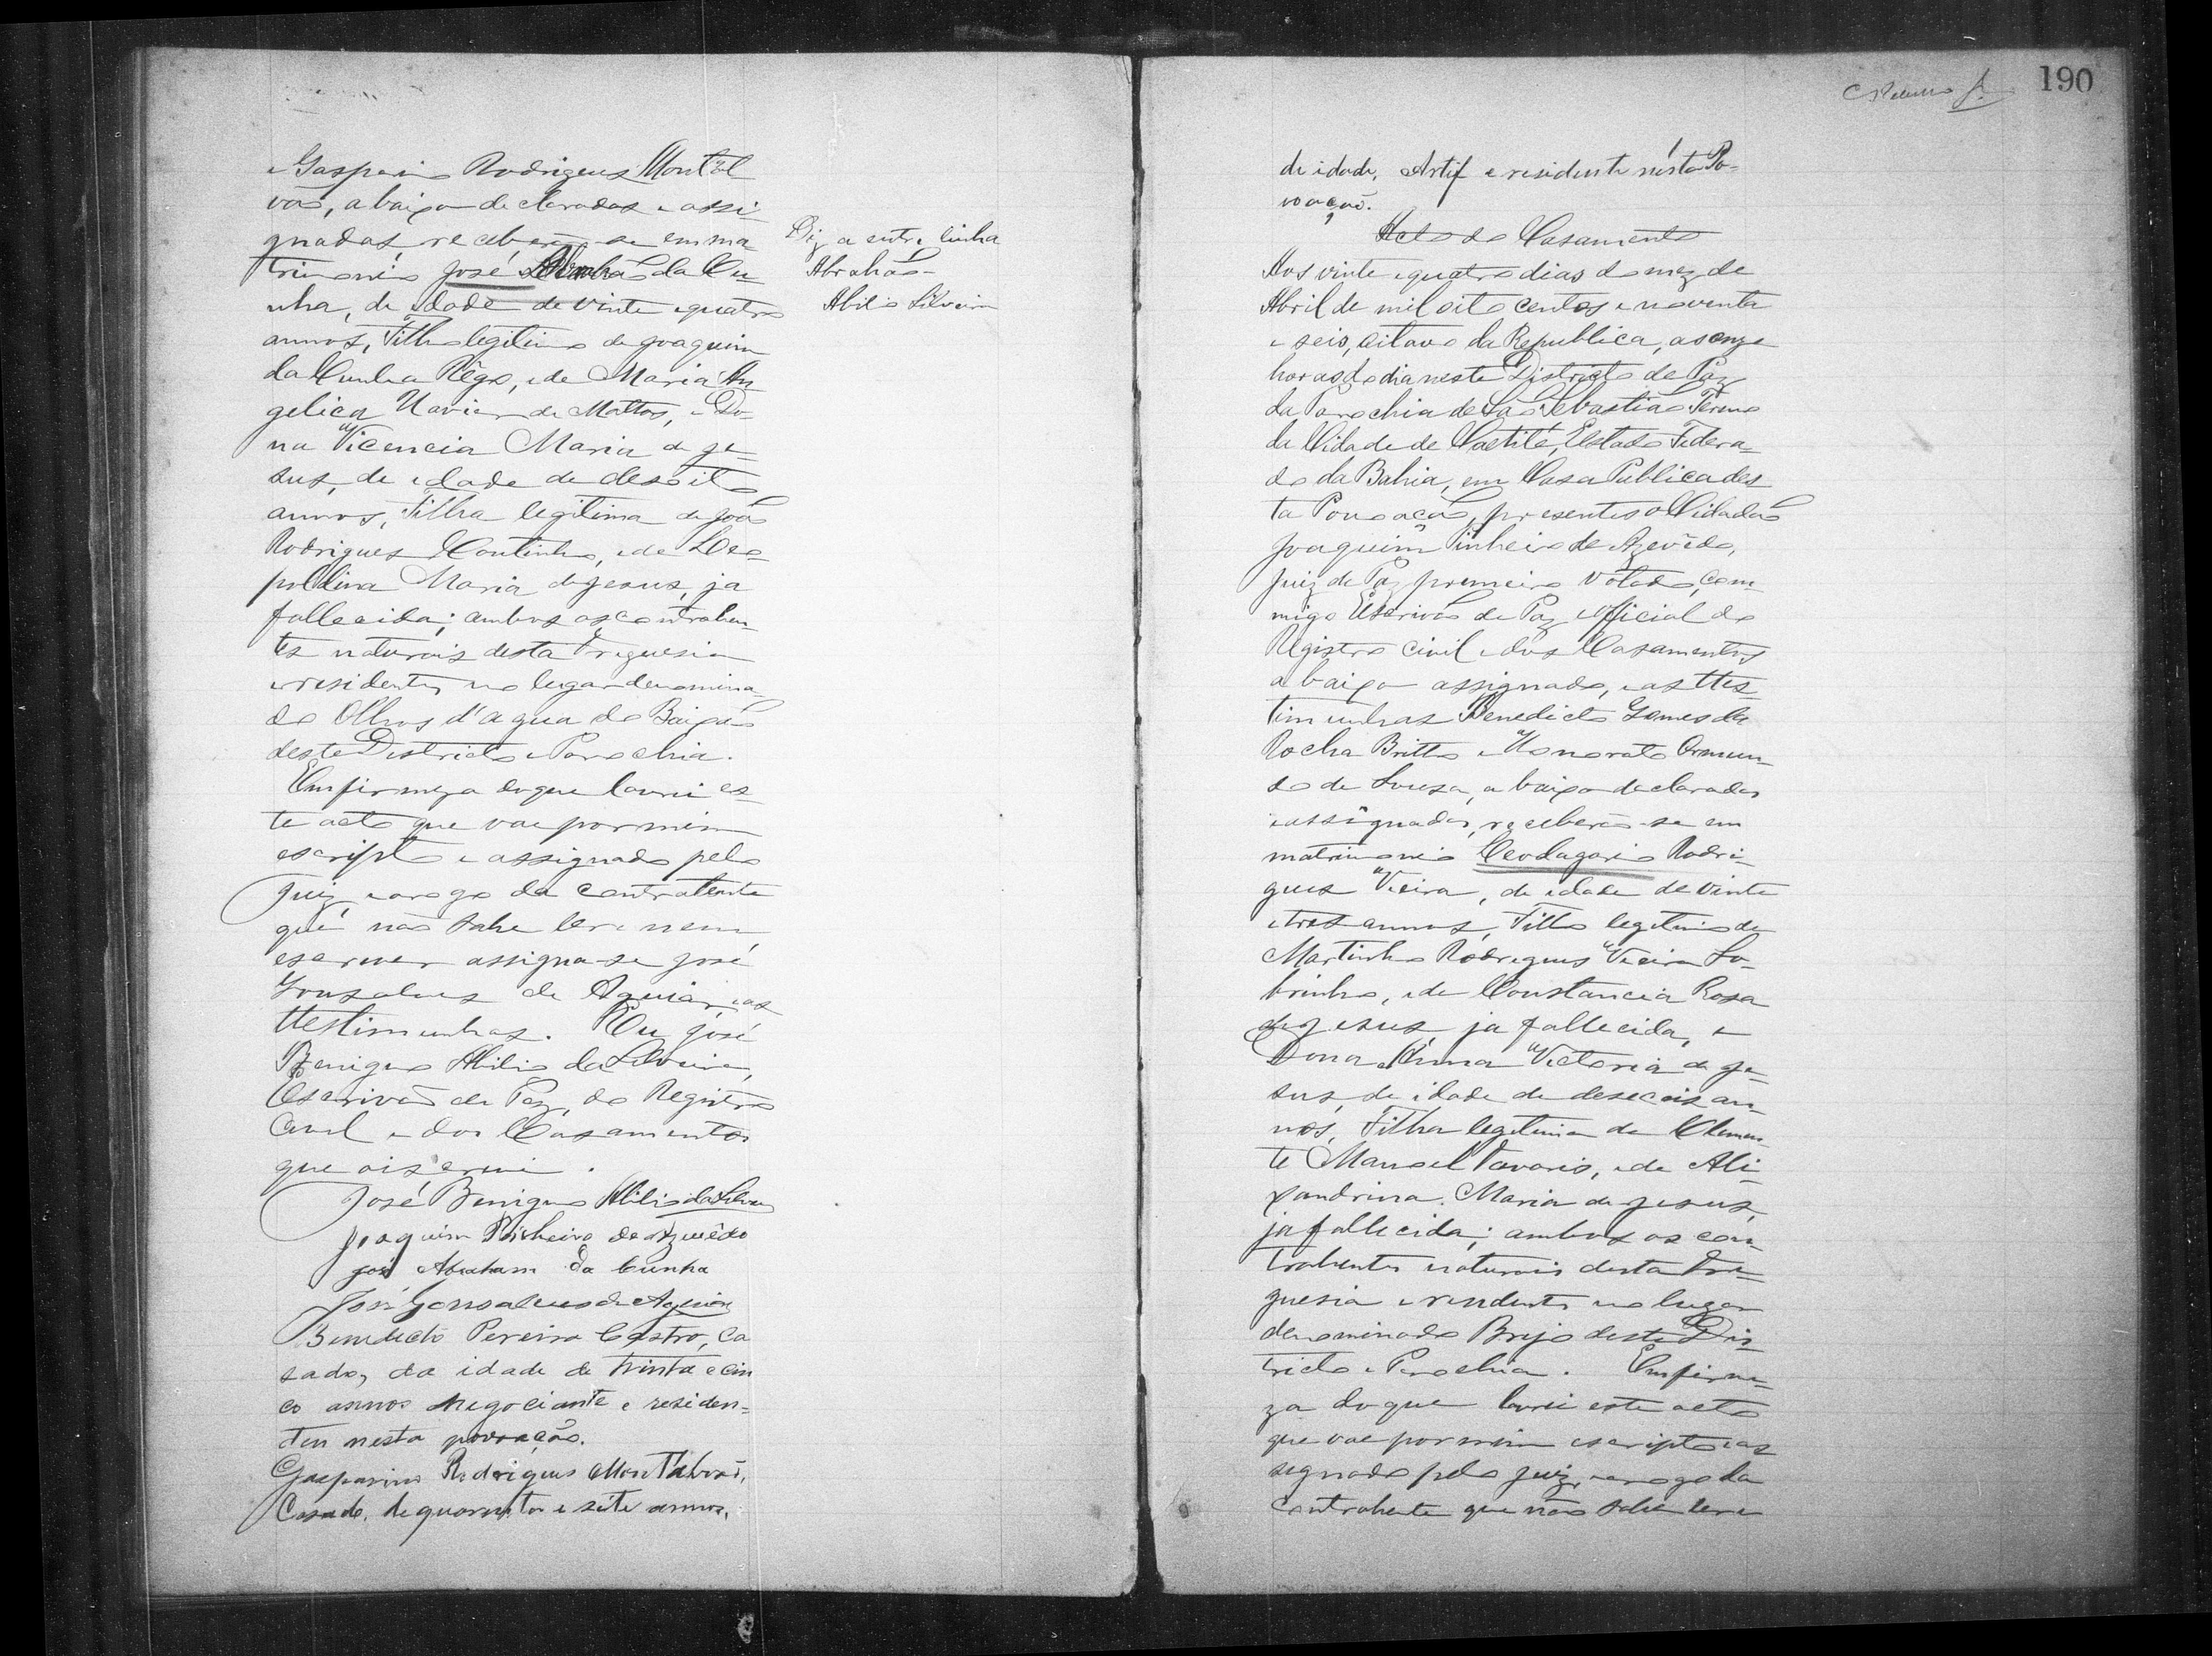 e Gasparino Rodrigues Montal
vão, abaixo declaradas e assi-
gnadas, receberão-se em ma-
trimonio José Abrahão da Cu-
nha, de idade de vinte e quatro
annos, Filho legitimo de Joaquim
da Cunha Rêgo, e de Maria An
gelica Xavier de Mattos, e Do-
na Vicencia Maria de Je-
sus, de idade de desoito
annos, Filha legitima de João
Rodrigues Coutinho, e de Leo
poldina Maria de Jesus, ja
fallecida; ambos os contrahen-
tes naturais desta Freguesia
e residentes no lugar denomina-
do Olhos d'agua do Baixão
deste Districto e Parochia.
Em firmeza do que lavrei es-
te acto que vae por mim
escripto e assignado pelo
Juiz, e a rogo da contrahente
que não sabe ler e nem
escrever assigna-se José
Gonsalves de Aguiar, e as
ttestimunhas. Eu José
Benigno Abilio da Silveira,
Escrivão de Paz, do Registro
Civil e dos Casamentos
que o iscrevi.
José Benigno Abilio da Silva
Joaquim Pinheiro de Azevêdo
José Abraham da Cunha
José Gonsalves de Aguiar
Benedicto Pereira Castro, ca
sado, da idade de trinta e cin
co annos negociante e residen-
ten nesta povoação.
Gasparino Rodrigues Montalvão,
Casado, de quarenta e séte annos,
Diz a entre linha
Abrahão-
Abilio Silveira
190
de idade, Artif e residente nésta Po-
voação.
Acto do Casamento
Aos vinte e quatro dias do mez de
Abril de mil oito centos e noventa
e seis, oitavo da Republica, as onze
horas do dia neste Districto de Paz
da Parochia de São Sebastião Termo
da Cidade de Caetité, Estado Federa-
do da Bahia, em Casa Publica des
ta Povoação, presentes o Cidadão
Joaquim Pinheiro de Azevêdo,
Juiz de Paz primeiro Votado, com-
migo Escrivão de Paz e official do
Registro Civil e dos Casamentos
abaixo assignado, e as ttes
timunhas Benedicto Gomes da
Rocha Britto e Honorato Ormun
do de Souza, abaixo declaradas
e assignadas, receberão-se em
matrimonio Ceodagario Rodri-
gues Vieira, de idade de vinte
e tres annos, Filho legitimo de
Martinho Rodrigues Vieira So-
brinho, e de Constancia Rosa
de Jesus, ja fallecida, e
Dona Anna Victoria de Je-
sus, de idade de deseceis an-
nos, Filha legitima de Clemen
te Manoel Tavaris, e de Ali-
xandrina Maria de Jesus,
ja fallecida; ambos os con-
trahentes naturais desta Fre-
guesia e residentes no lugar
denominado Brejo deste Dis-
tricto e Parochia. Em firme-
za do que lavrei este acto
que vae por mim escripto e as
signado pelo Juiz, e a rogo da
contrahente que não sabe ler e